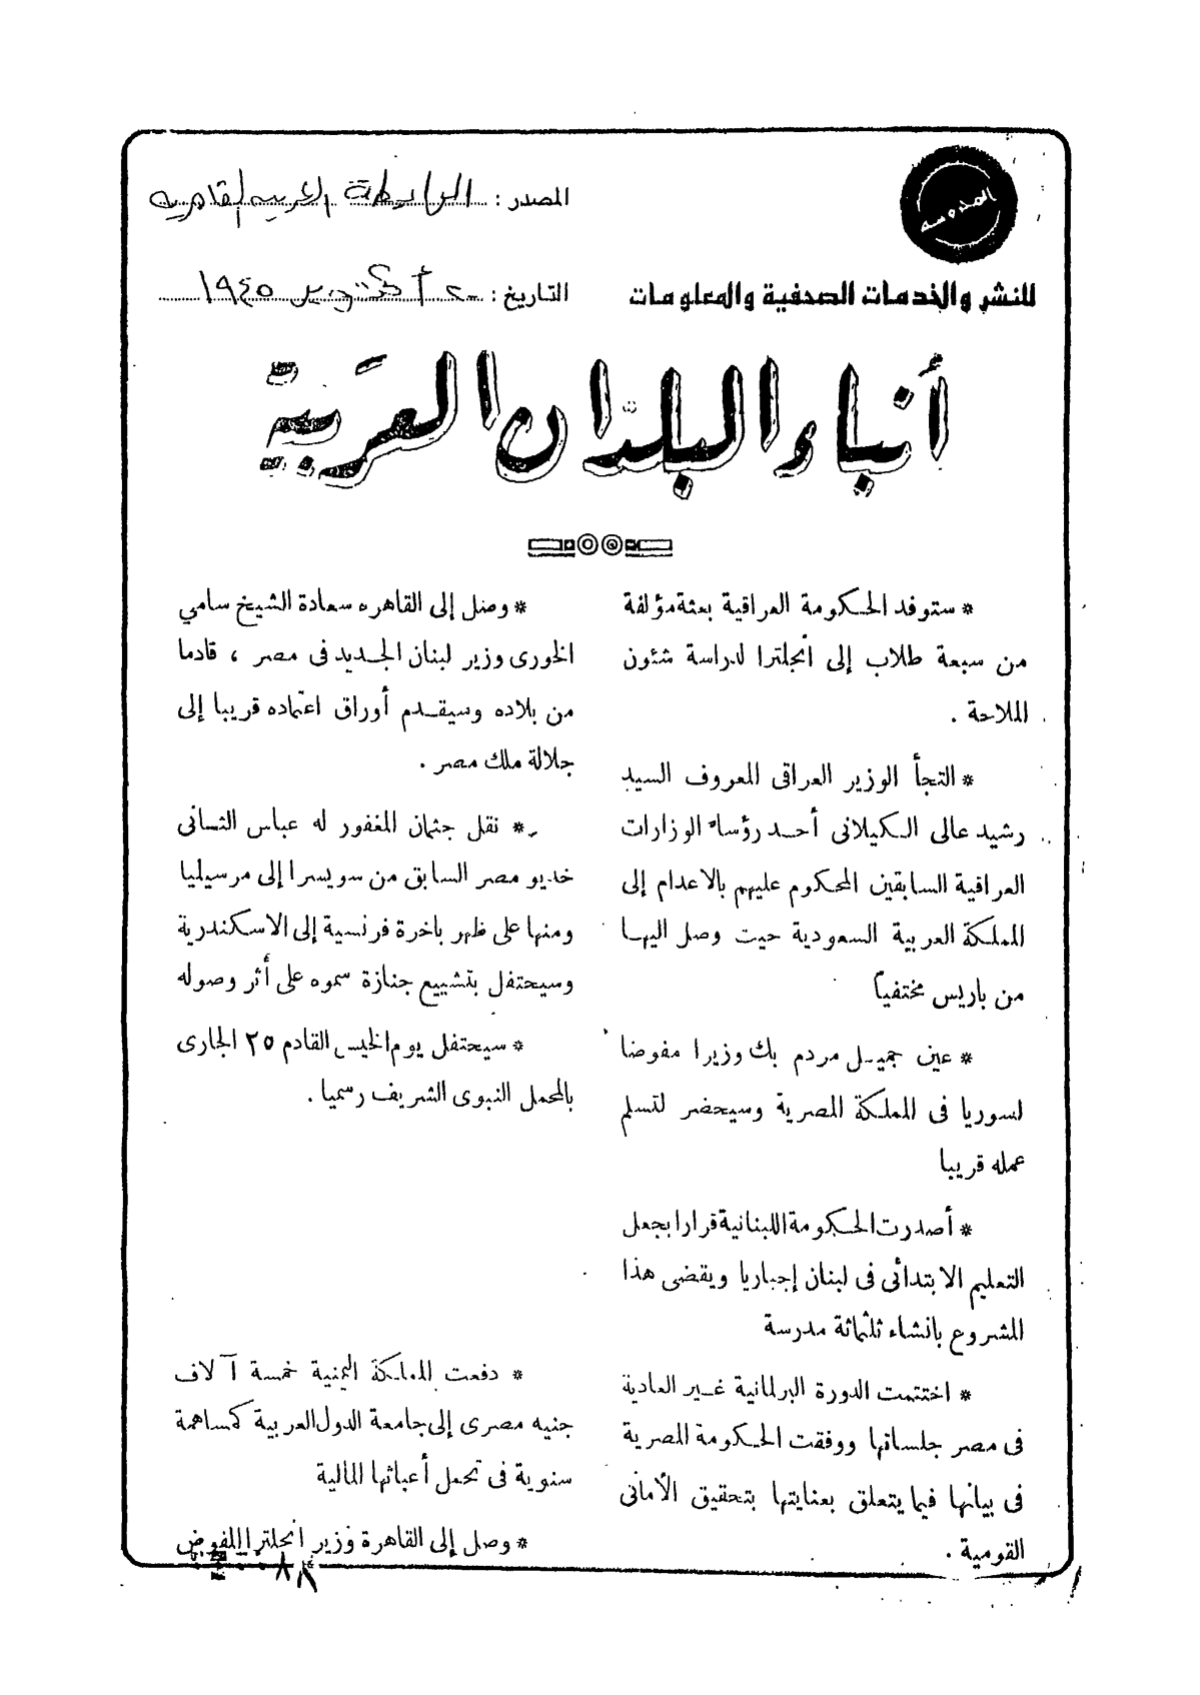 المدرسة
للنشر والخدمات الصحفية والمعلومات
المصدر : الرابطة العربية القاهرية
التاريخ : ٢٠ أكتوبر ١٩٤٥
أنباء البلدان العربية
* ستوفد الحكومة العراقية بعثة مؤلفة
من سبعة طلاب إلى انجلترا لدراسة شئون
الملاحة .
* التجأ الوزير العراقى المعروف السيد
رشيد عالى الكيلانى أحد رؤساء الوزارات
العراقية السابقين المحكوم عليهم بالاعدام إلى
المملكة العربية السعودية حيث وصل اليها
من باريس مختفياً
* عين جميل مردم بك وزيرا مفوضا
لسوريا فى المملكة المصرية وسيحضر لتسلم
عمله قريبا
* أصدرت الحكومة اللبنانية قرارا بجعل
التعليم الابتدائى فى لبنان إجباريا ويقضى هذا
المشروع بانشاء ثلثمائة مدرسة
* اختتمت الدورة البرلمانية غير العادية
فى مصر جلساتها ووفقت الحكومة المصرية
فى بيانها فيما يتعلق بعنايتها بتحقيق الأمانى
القومية .
* وصل إلى القاهره سعادة الشيخ سامي
الخورى وزير لبنان الجديد فى مصر ، قادما
من بلاده وسيقدم أوراق اعتماده قريبا إلى
جلالة ملك مصر .
* نقل جثمان المغفور له عباس الثانى
خديو مصر السابق من سويسرا إلى مرسيليا
ومنها على ظهر باخرة فرنسية إلى الاسكندرية
وسيحتفل بتشييع جنازة سموه على أثر وصوله
* سيحتفل يوم الخميس القادم ٢٥ الجارى
بالمحمل النبوى الشريف رسميا .
* دفعت المملكة اليمنية خمسة آلاف
جنيه مصرى إلى جامعة الدول العربية كمساهمة
سنوية فى تحمل أعبائها المالية
* وصل إلى القاهرة وزير انجلترا المفوض